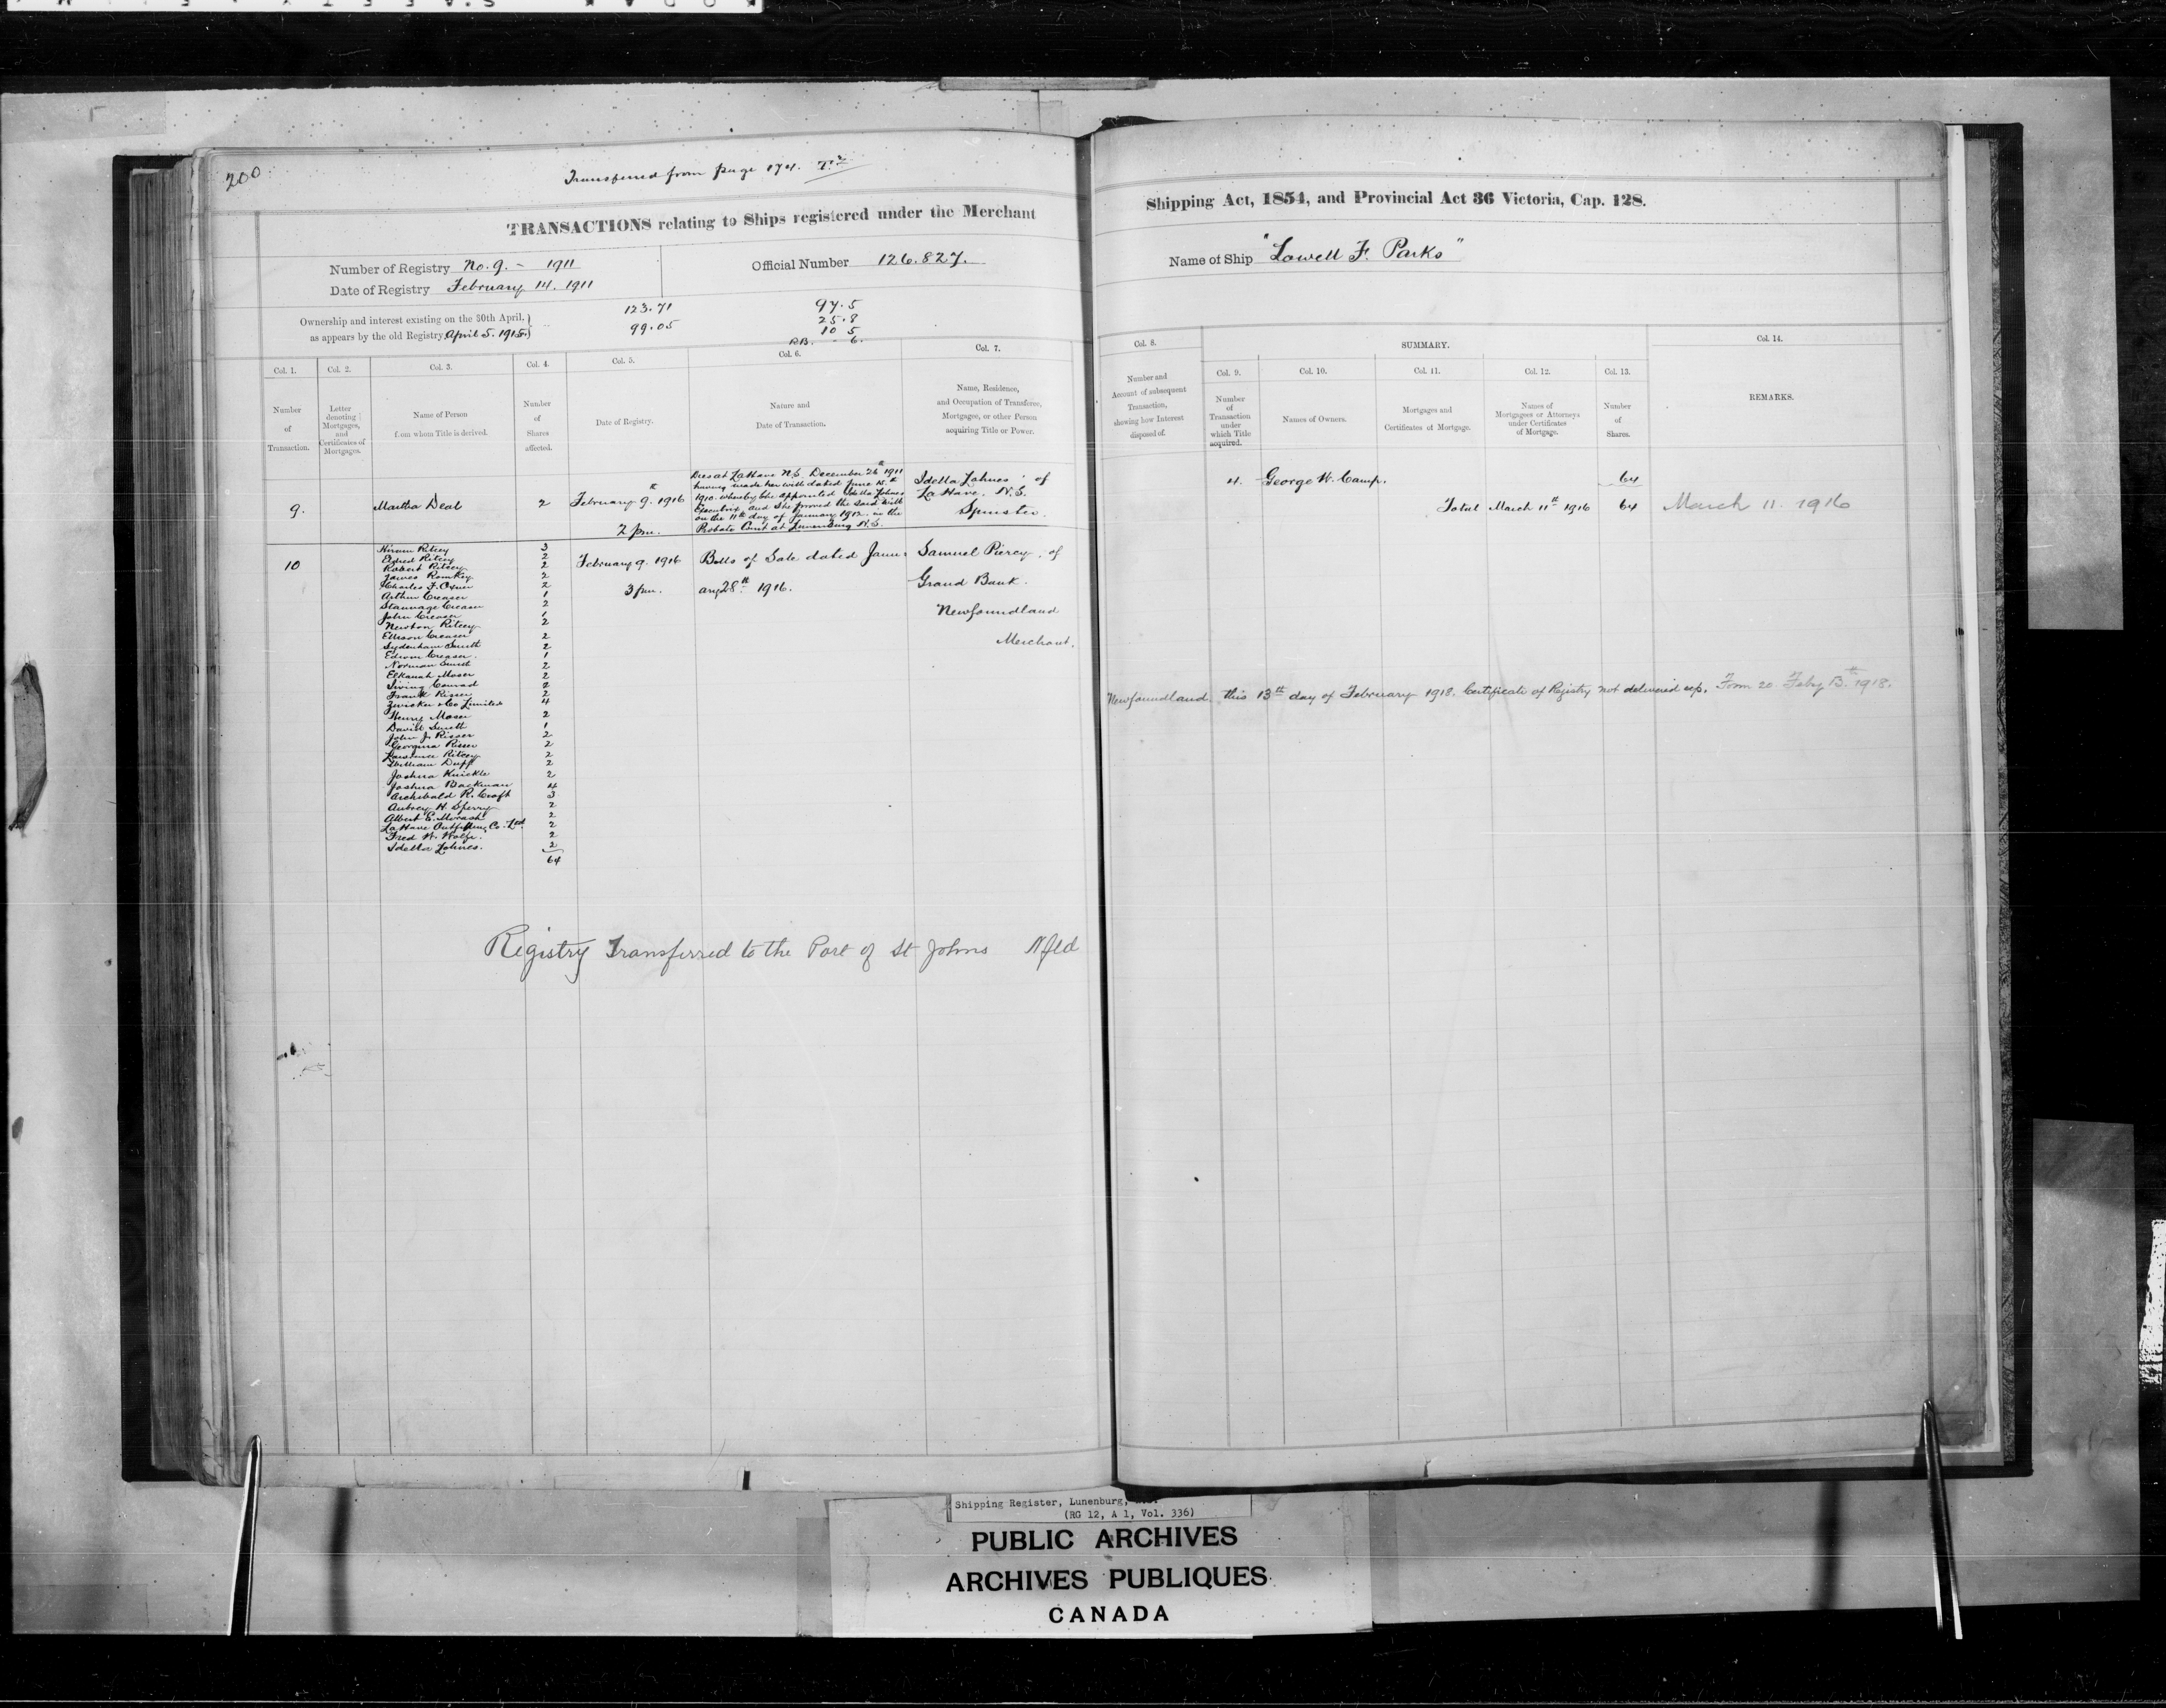 KODAK SAFETY
200
Transferred from page 174.
TRANSACTIONS relating to Ships registered under the Merchant
Shipping Act, 1854, and Provincial Act 36 Victoria, Cap. 128.
Number of Registry No. 9. - 1911
Official Number 126.827.
Name of Ship "Lowell F. Parks"
Date of Registry February 14. 1911
Ownership and interest existing on the 30th April.
as appears by the old Registry April 5. 1915.
123.71
99.05
97.5
25.8
10 5
RB. - 6.
Col. 1. Col. 2. Col. 3. Col. 4. Col. 5. Col. 6. Col. 7.
Number of Transaction.
Letter denoting Mortgages, and Certificates of Mortgages.
Name of Person from whom Title is derived.
Number of Shares affected.
Date of Registry.
Nature and Date of Transaction.
Name, Residence, and Occupation of Transferee, Mortgagee, or other Person acquiring Title or Power.
Col. 8. SUMMARY. Col. 14.
Col. 9. Col. 10. Col. 11. Col. 12. Col. 13.
Number and Account of subsequent Transaction, shewing how Interest disposed of.
Number of Transaction under which Title acquired.
Names of Owners.
Mortgages and Certificates of Mortgage.
Names of Mortgagees or Attorneys under Certificates of Mortgage.
Number of Shares.
REMARKS.
9. Martha Deal 2 February 9th. 1916
2 pm.
Dies at LaHave N.S. December 26th 1911
having made her will dated June 15th
1910. whereby she appointed Idella Lohnes
Executrix and she proved the said will
on the 11th day of January 1912. in the
Probate Court at Lunenburg N.S.
Idella Lohnes of
LaHave. N.S.
Spinster.
10 February 9. 1916
3 pm.
Bills of Sale dated Janu-
ary 28th 1916.
Samuel Piercy, of
Grand Bank.
Newfoundland
Merchant.
Hiram Ritcey 3
Elfred Ritcey 2
Robert Ritcey 2
James Romkey 2
Charles F. Oxner 2
Arthur Creaser 1
Stannage Creaser 2
John Creaser 1
Newton Ritcey 2
Ellison Creaser 2
Sydenham Smith 2
Edwin Creaser. 1
Norman Smith 2
Elkanah Moser 2
Irving Conrad 2
Frank Risser 2
Zwicker & Co Limited 4
Henry Moser 2
David Smith 1
John J. Risser 2
Georgina Risser 2
Lawrence Ritcey 2
William Duff 2
Joshua Knickle 2
Joshua Backman 4
Archibald R. Croft 3
Aubrey H. Sperry 2
Albert E. Morash 2
LaHave Outfitting Co. Ltd. 2
Fred W. Wolfe. 2
Idella Lohnes. 2
64
4. George W. Camp. 64
Total March 11th 1916 64 March 11. 1916
Newfoundland. this 13th day of February 1918. Certificate of Registry not delivered up. Form 20. Feby 13th 1918.
Registry Transferred to the Port of St Johns Nfld
Shipping Register, Lunenburg,
(RG 12, A 1, Vol. 336)
PUBLIC ARCHIVES
ARCHIVES PUBLIQUES
CANADA